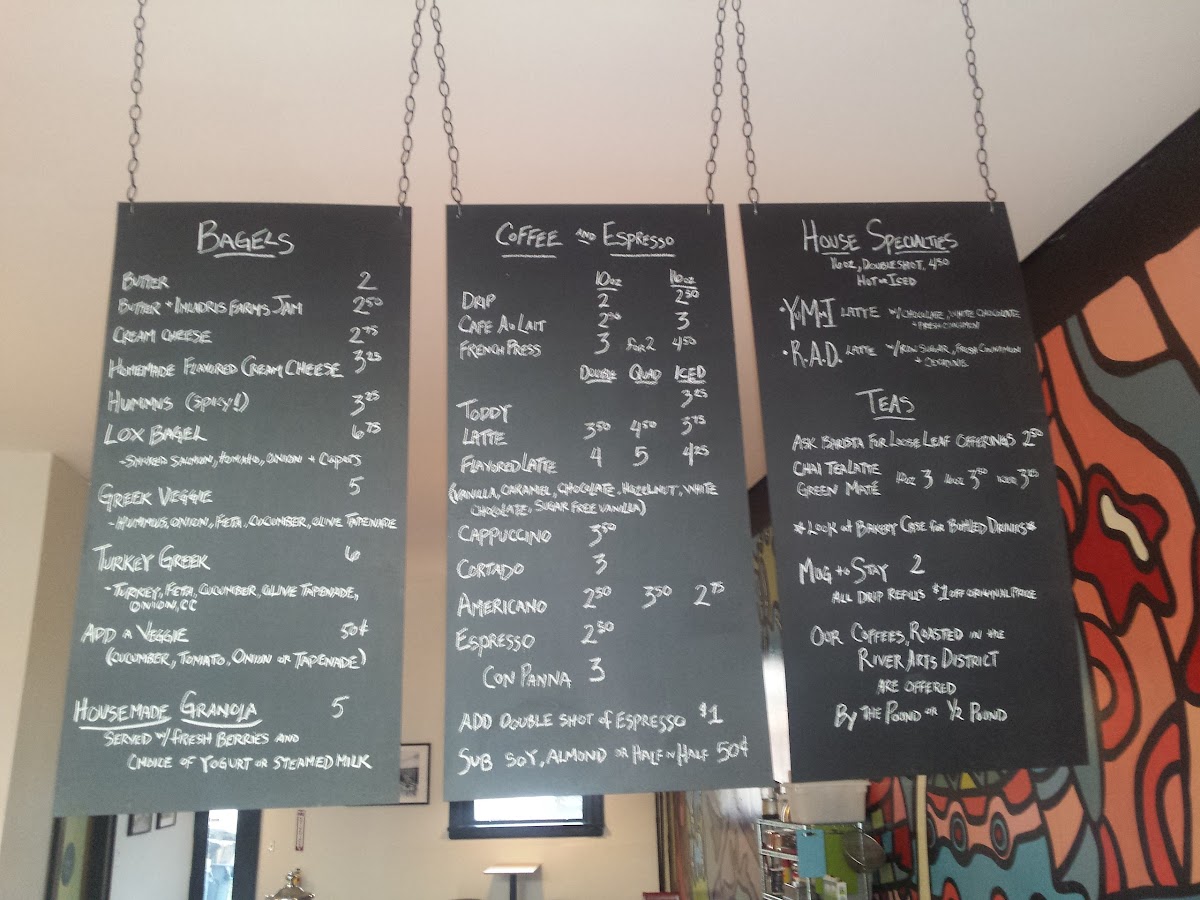 BAGELS
BUTTER 2
BUTTER + IMLADRIS FARMS JAM 2 50
CREAM CHEESE 2 75
HOMEMADE FLAVORED CREAM CHEESE 3 25
HUMMUS (SPICY!) 3 25
LOX BAGEL 6 75
-SMOKED SALMON, TOMATO, ONION + CAPERS
GREEK VEGGIE 5
-HUMMUS, ONION, FETA, CUCUMBER, OLIVE TAPENADE
TURKEY GREEK 6
-TURKEY, FETA, CUCUMBER, OLIVE TAPENADE,
ONION, CC
ADD A VEGGIE 50¢
(CUCUMBER, TOMATO, ONION OR TAPENADE)
HOUSEMADE GRANOLA 5
SERVED W/ FRESH BERRIES AND
CHOICE OF YOGURT OR STEAMED MILK
COFFEE AND ESPRESSO
10OZ 16OZ
DRIP 2 2 50
CAFE AU LAIT 3
FRENCH PRESS 3 FOR 2 4 50
DOUBLE QUAD ICED
TODDY 3 25
LATTE 3 50 4 50 3 75
FLAVORED LATTE 4 5 4 25
(VANILLA, CARAMEL, CHOCOLATE, HAZELNUT, WHITE
CHOCOLATE, SUGAR FREE VANILLA)
CAPPUCCINO 3 50
CORTADO 3
AMERICANO 2 50 3 50 2 75
ESPRESSO 2 50
CON PANNA 3
ADD DOUBLE SHOT OF ESPRESSO $1
SUB SOY, ALMOND OR HALF N HALF 50¢
HOUSE SPECIALTIES
16OZ, DOUBLE SHOT, 4 50
HOT OR ICED
·YUMMI LATTE W/ CHOCOLATE, WHITE CHOCOLATE
+ FRESH CINNAMON
·R.A.D. LATTE W/ RAW SUGAR, FRESH CINNAMON
TEAS
ASK BARISTA FOR LOOSE LEAF OFFERINGS 2 50
CHAI TEA LATTE
GREEN MATÉ 10OZ 3 16OZ 3 50 ICED 3 75
*LOOK AT BAKERY CASE FOR BOTTLED DRINKS*
MUG TO STAY 2
ALL DRIP REFILLS $1 OFF ORIGINAL PRICE
OUR COFFEES, ROASTED IN THE
RIVER ARTS DISTRICT
ARE OFFERED
BY THE POUND OR 1/2 POUND